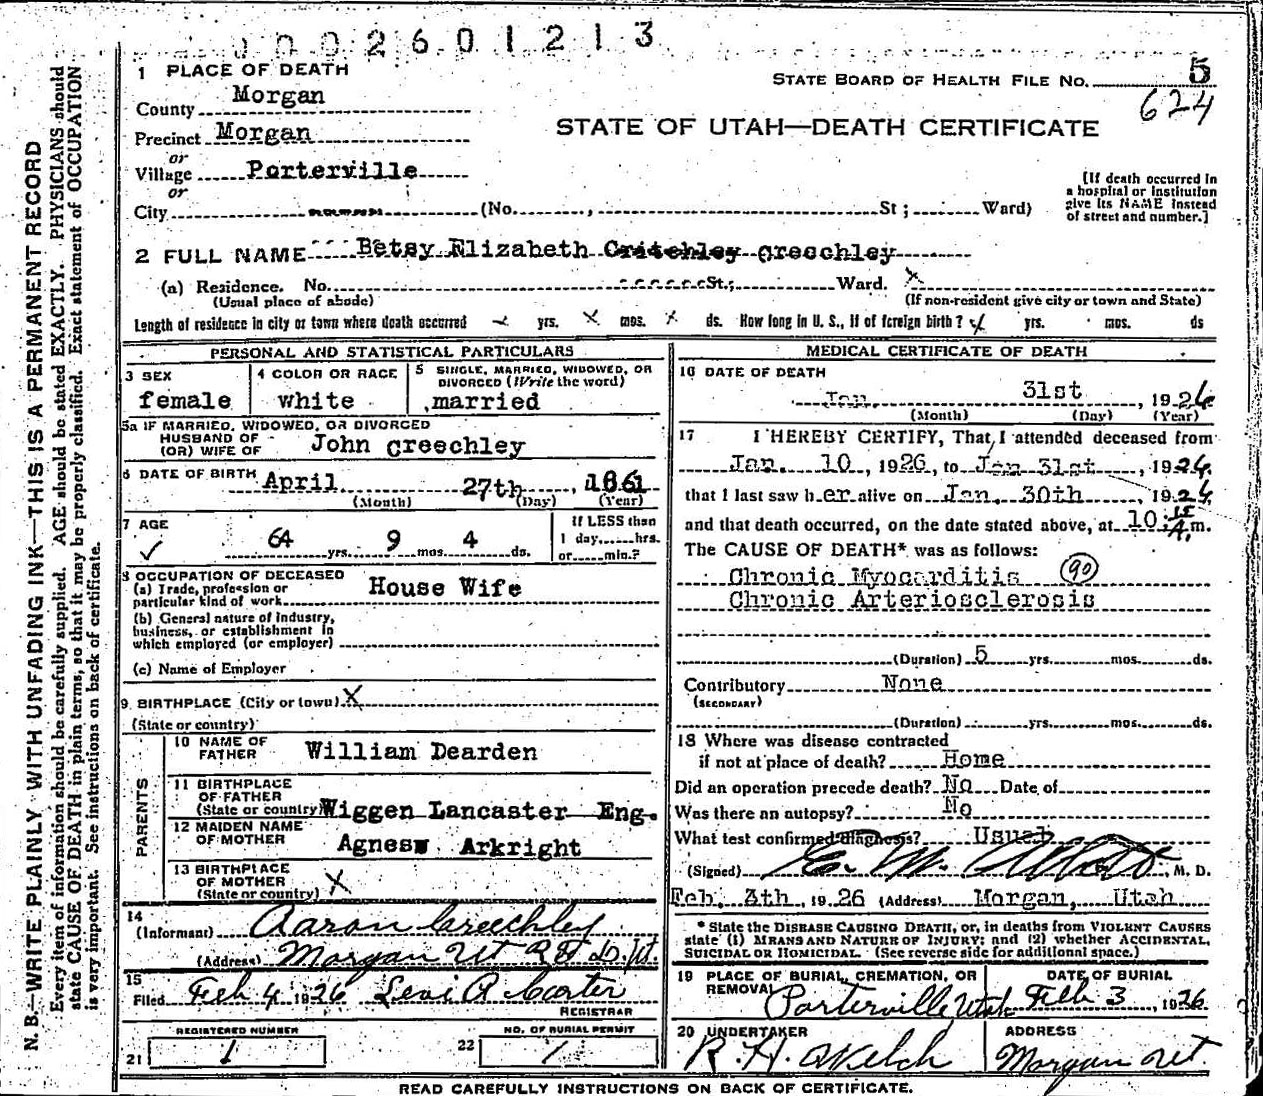 0002601213
1 PLACE OF DEATH
STATE BOARD OF HEALTH FILE NO. 5
624
County Morgan
Precinct Morgan
STATE OF UTAH—DEATH CERTIFICATE
or
Village Porterville
or
City (No. , St; Ward)
[If death occurred in
a hospital or institution
give its NAME instead
of street and number.]
2 FULL NAME Betsy Elizabeth Critchley creechley
(a) Residence. No. St.; Ward. X
(Usual place of abode) (If non-resident give city or town and State)
Length of residence in city or town where death occurred yrs. X mos. X ds. How long in U. S., if of foreign birth? yrs. mos. ds
PERSONAL AND STATISTICAL PARTICULARS
3 SEX female
4 COLOR OR RACE white
5 SINGLE, MARRIED, WIDOWED, OR
DIVORCED (Write the word)
married
5a IF MARRIED, WIDOWED, OR DIVORCED
HUSBAND OF
(OR) WIFE OF John creechley
6 DATE OF BIRTH April 27th, 1861
(Month) (Day) (Year)
7 AGE
64 yrs. 9 mos. 4 ds.
If LESS than
1 day, hrs.
or min.?
8 OCCUPATION OF DECEASED
(a) Trade, profession or
particular kind of work House Wife
(b) General nature of industry,
business, or establishment in
which employed (or employer)
(c) Name of Employer
9 BIRTHPLACE (City or town) X
(State or country)
PARENTS
10 NAME OF
FATHER William Dearden
11 BIRTHPLACE
OF FATHER
(State or country) Wiggen Lancaster Eng.
12 MAIDEN NAME
OF MOTHER Agnes Arkright
13 BIRTHPLACE
OF MOTHER
(State or country) X
14
(Informant) Aaron Creechley
(Address) Morgan Ut R F D #1
15
Filed Feb 4, 1926 Levi A Carter
REGISTRAR
REGISTERED NUMBER
21 1
NO. OF BURIAL PERMIT
22 1
MEDICAL CERTIFICATE OF DEATH
16 DATE OF DEATH
Jan. 31st, 1926
(Month) (Day) (Year)
17 I HEREBY CERTIFY, That I attended deceased from
Jan. 10, 1926, to Jan 31st, 1926.
that I last saw her alive on Jan. 30th, 1926
and that death occurred, on the date stated above, at 10:15 A.m.
The CAUSE OF DEATH* was as follows:
Chronic Myocarditis 90
Chronic Arteriosclerosis
(Duration) 5 yrs. mos. ds.
Contributory None
(SECONDARY)
(Duration) yrs. mos. ds.
18 Where was disease contracted
if not at place of death? Home
Did an operation precede death? No Date of
Was there an autopsy? No
What test confirmed diagnosis? Usual
(Signed) E. M. Abbott, M. D.
Feb, 3th, 1926 (Address) Morgan, Utah
* State the DISEASE CAUSING DEATH, or, in deaths from VIOLENT CAUSES
state (1) MEANS AND NATURE OF INJURY; and (2) whether ACCIDENTAL,
SUICIDAL OR HOMICIDAL. (See reverse side for additional space.)
19 PLACE OF BURIAL, CREMATION, OR
REMOVAL Porterville Utah
DATE OF BURIAL
Feb 3, 1926
20 UNDERTAKER
R. H. Welch
ADDRESS
Morgan Ut.
READ CAREFULLY INSTRUCTIONS ON BACK OF CERTIFICATE.
N. B.—WRITE PLAINLY WITH UNFADING INK—THIS IS A PERMANENT RECORD
Every item of information should be carefully supplied. AGE should be stated EXACTLY. PHYSICIANS should
state CAUSE OF DEATH in plain terms, so that it may be properly classified. Exact statement of OCCUPATION
is very important. See instructions on back of certificate.